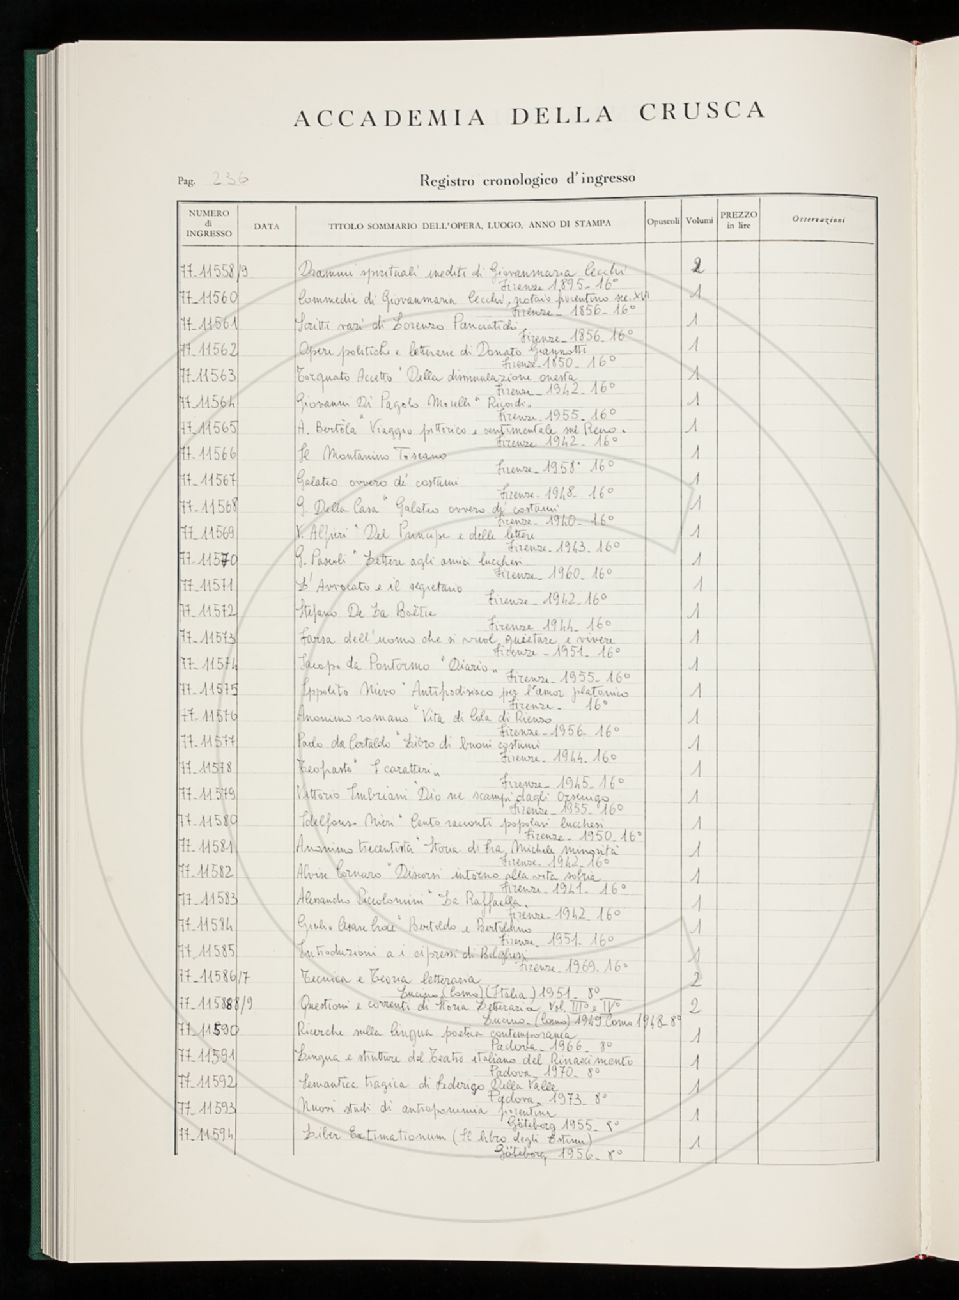 ACCADEMIA DELLA CRUSCA
Pag. 236
Registro cronologico d'ingresso
NUMERO di INGRESSO DATA TITOLO SOMMARIO DELL'OPERA, LUOGO, ANNO DI STAMPA Opuscoli Volumi PREZZO in lire Osservazioni
77-11558/9 Drammi spirituali inediti di Giovanmaria Cecchi 2
Firenze 1895- 16°
77-11560 Commedie di Giovanmaria Cecchi, notaio fiorentino sec. XVI 1
Firenze - 1856- 16°
77-11561 Scritti vari di Lorenzo Panciatichi 1
Firenze- 1856- 16°
77-11562 Opere politiche e letterarie di Donato Giannotti 1
Firenze- 1850- 16°
77-11563 Torquato Accetto "Della dissimulazione onesta 1
Firenze - 1942- 16°
77-11564 Giovanni Di Pagolo Morelli "Ricordi" 1
Firenze - 1955- 16°
77-11565 A. Bertola "Viaggio pittorico e sentimentale sul Reno" 1
Firenze 1942- 16°
77-11566 Il Montanino Toscano 1
Firenze - 1958- 16°
77-11567 Galateo ovvero de' costumi 1
Firenze- 1948- 16°
77-11568 G. Della Casa "Galateo ovvero de' costumi 1
Firenze- 1940- 16°
77-11569 V. Alfieri "Del Principe e delle lettere 1
Firenze- 1943- 16°
77-11570 G. Pascoli "Lettere agli amici lucchesi 1
Firenze- 1960- 16°
77-11571 L'Avvocato e il segretario 1
Firenze - 1942- 16°
77-11572 Stefano De La Boëtie 1
Firenze - 1944- 16°
77-11573 Farsa dell'uomo che si vuol quietare e vivere 1
Firenze - 1951- 16°
77-11574 Jacopo da Pontormo "Diario" 1
Firenze- 1955- 16°
77-11575 Ippolito Nievo "Antiafrodisiaco per l'amor platonico 1
Firenze- 16°
77-11576 Anonimo romano "Vita di Cola di Rienzo 1
Firenze- 1956- 16°
77-11577 Paolo da Certaldo "Libro di buoni costumi 1
Firenze- 1944- 16°
77-11578 Teofrasto "I caratteri" 1
Firenze- 1945- 16°
77-11579 Vittorio Imbriani Dio ne scampi dagli Orsenigo 1
Firenze- 1955- 16°
77-11580 Idelfonso Nieri "Cento racconti popolari lucchesi 1
Firenze- 1950- 16°
77-11581 Anonimo trecentista "Storia di Fra Michele minorita 1
Firenze- 1942- 16°
77-11582 Alvise Cornaro "Discorsi intorno alla vita sobria 1
Firenze- 1941- 16°
77-11583 Alessandro Piccolomini "La Raffaella" 1
Firenze- 1942- 16°
77-11584 Giulio Cesare Croce "Bertoldo e Bertoldino 1
Firenze- 1951- 16°
77-11585 Introduzioni a i cipressi di Bolgheri 1
Firenze- 1969- 16°
77-11586/7 Tecnica e Teoria letteraria 2
(Como) (Italia) 1951- 8°
77-11588/9 Questioni e correnti di Storia Letteraria, Vol. III° e IV° 2
(Como) 1949 Como 1948- 8°
77-11590 Ricerche sulla lingua poetica contemporanea 1
Padova- 1966- 8°
77-11591 Lingua e strutture del Teatro italiano del Rinascimento 1
Padova- 1970- 8°
77-11592 Semantica tragica di Federigo Della Valle 1
Padova- 1973- 8°
77-11593 Nuovi studi di antroponimia fiorentina 1
Göteborg 1955- 8°
77-11594 Liber Extimationum (Il libro degli Estimi) 1
Göteborg 1956- 8°